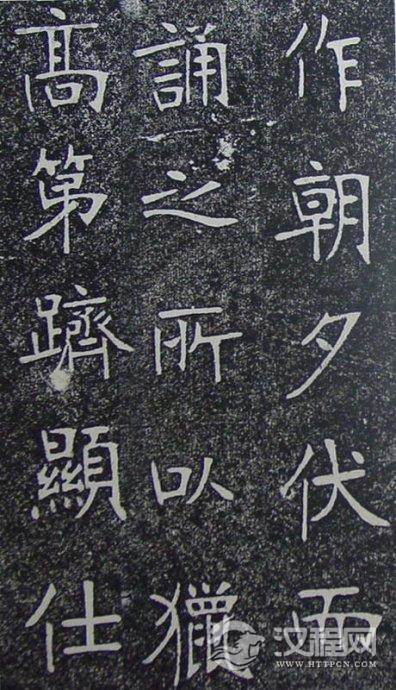 作朝夕伏而
誦之所以獵
髙第躋顯仕
汉程网
WWW.HTTPCN.COM